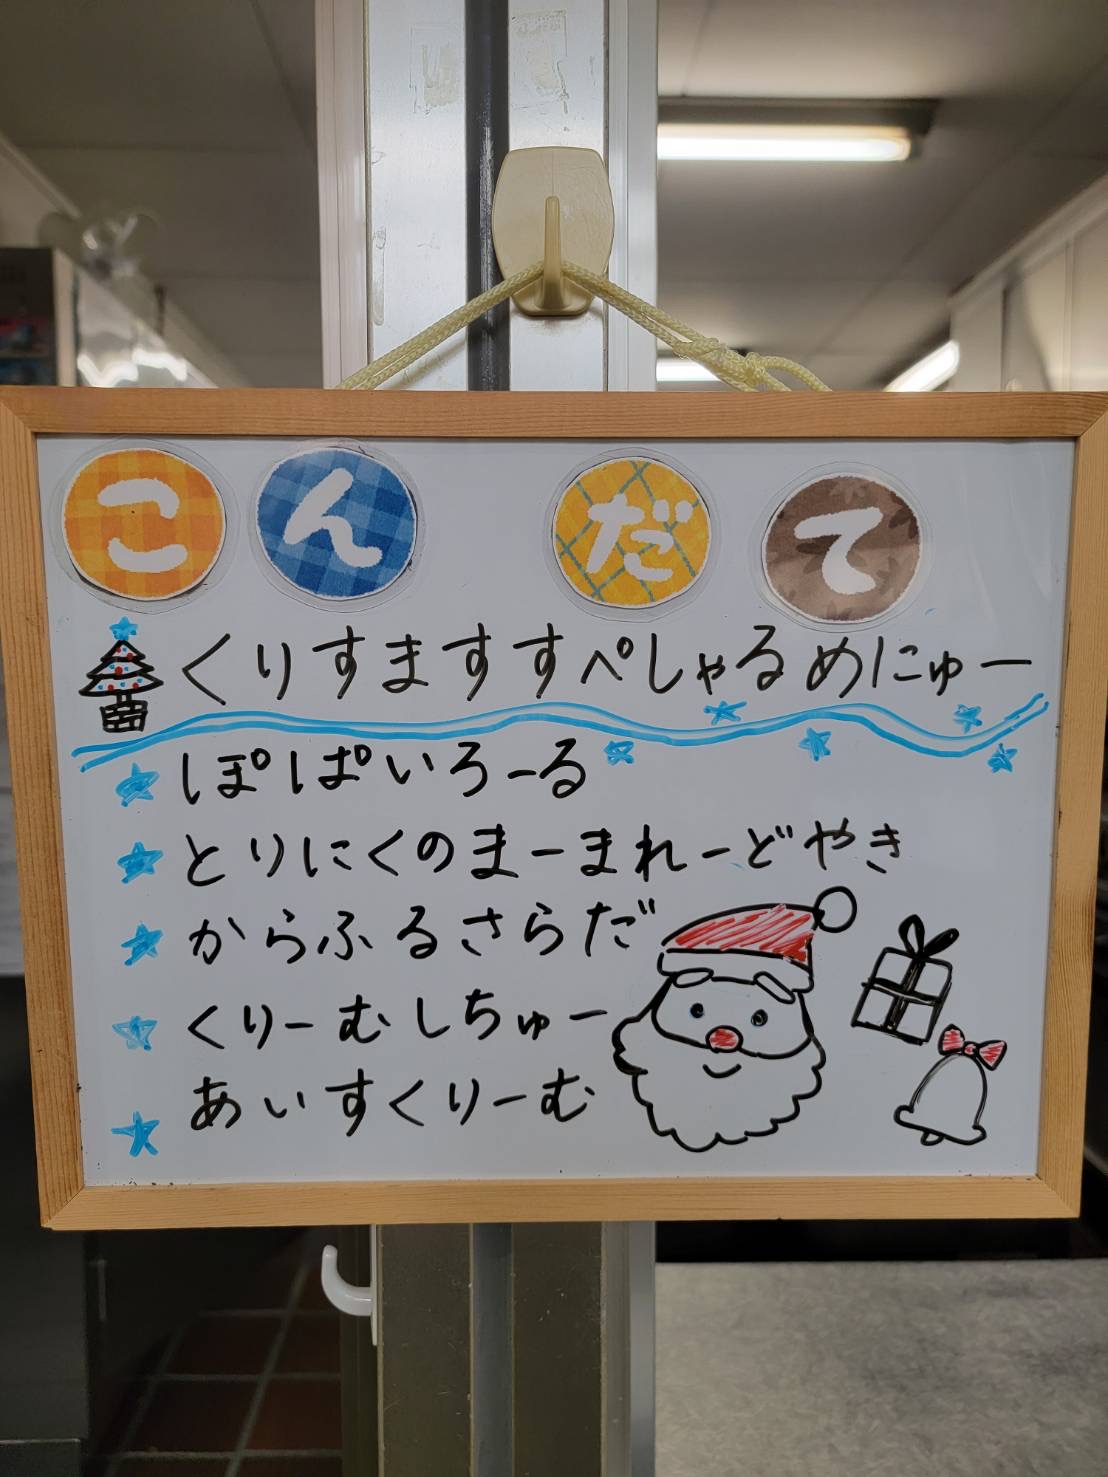 こんだて
くりすますすぺしゃるめにゅー
ぽぱいろーる
とりにくのまーまれーどやき
からふるさらだ
くりーむしちゅー
あいすくりーむ